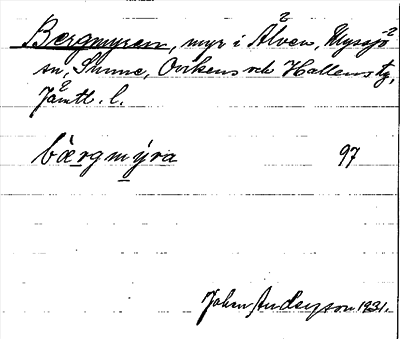 Bergmyren, myr i Älven, Myssjö
sn, Sunne, Ovikens och Hallens tg,
Jämtl. l.
bærgmýra 97
John Andersson 1931.